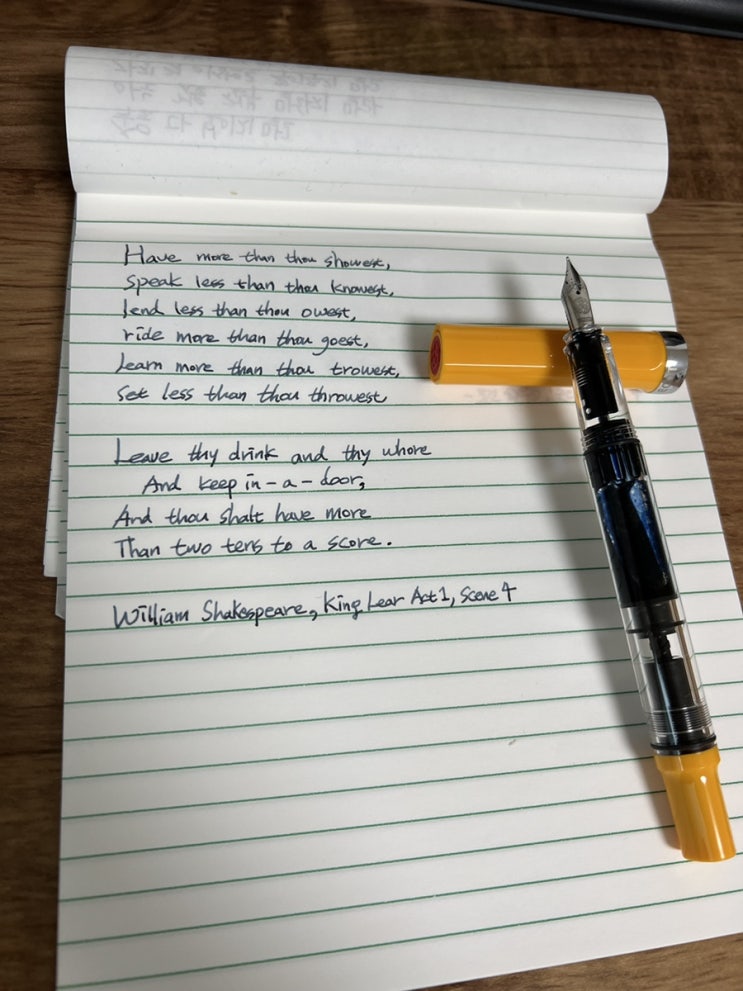 Have more than thou showest,
speak less than thou knowest,
lend less than thou owest,
ride more than thou goest,
Learn more than thou trowest,
Set less than thou throwest
Leave thy drink and thy whore
And keep in-a-door,
And thou shalt have more
Than two tens to a score.
William Shakespeare, King Lear Act 1, Scene 4